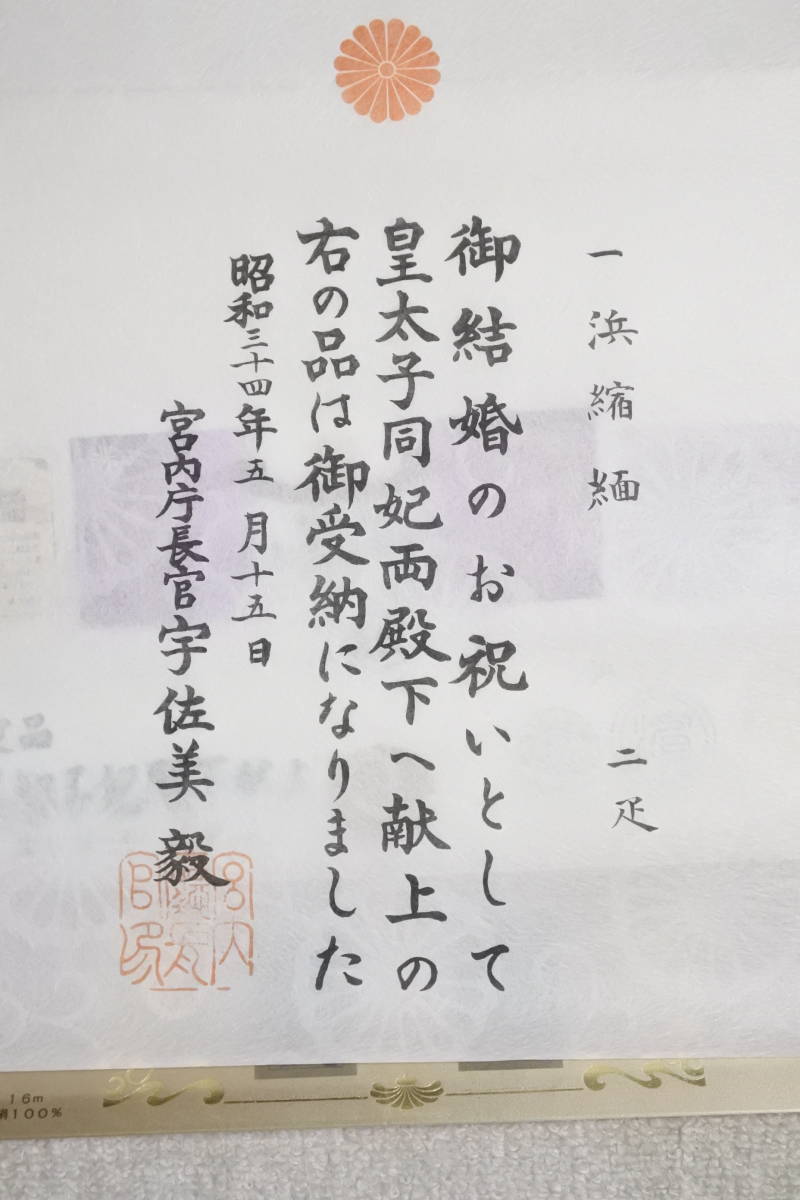 一 浜縮緬 二疋
御結婚のお祝いとして
皇太子同妃両殿下へ献上の
右の品は御受納になりました
昭和三十四年五月十五日
宮内庁長官宇佐美毅
16m
絹100%